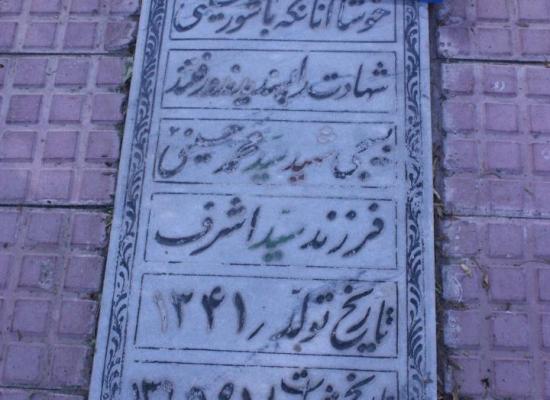 خوشا آنانکه با شور حسینی
شهادت را پسندیدند و رفتند
بسیجی شهید سید محمد حسینی
فرزند سید اشرف
تاریخ تولد ۱۳۴۱
تاریخ شهادت